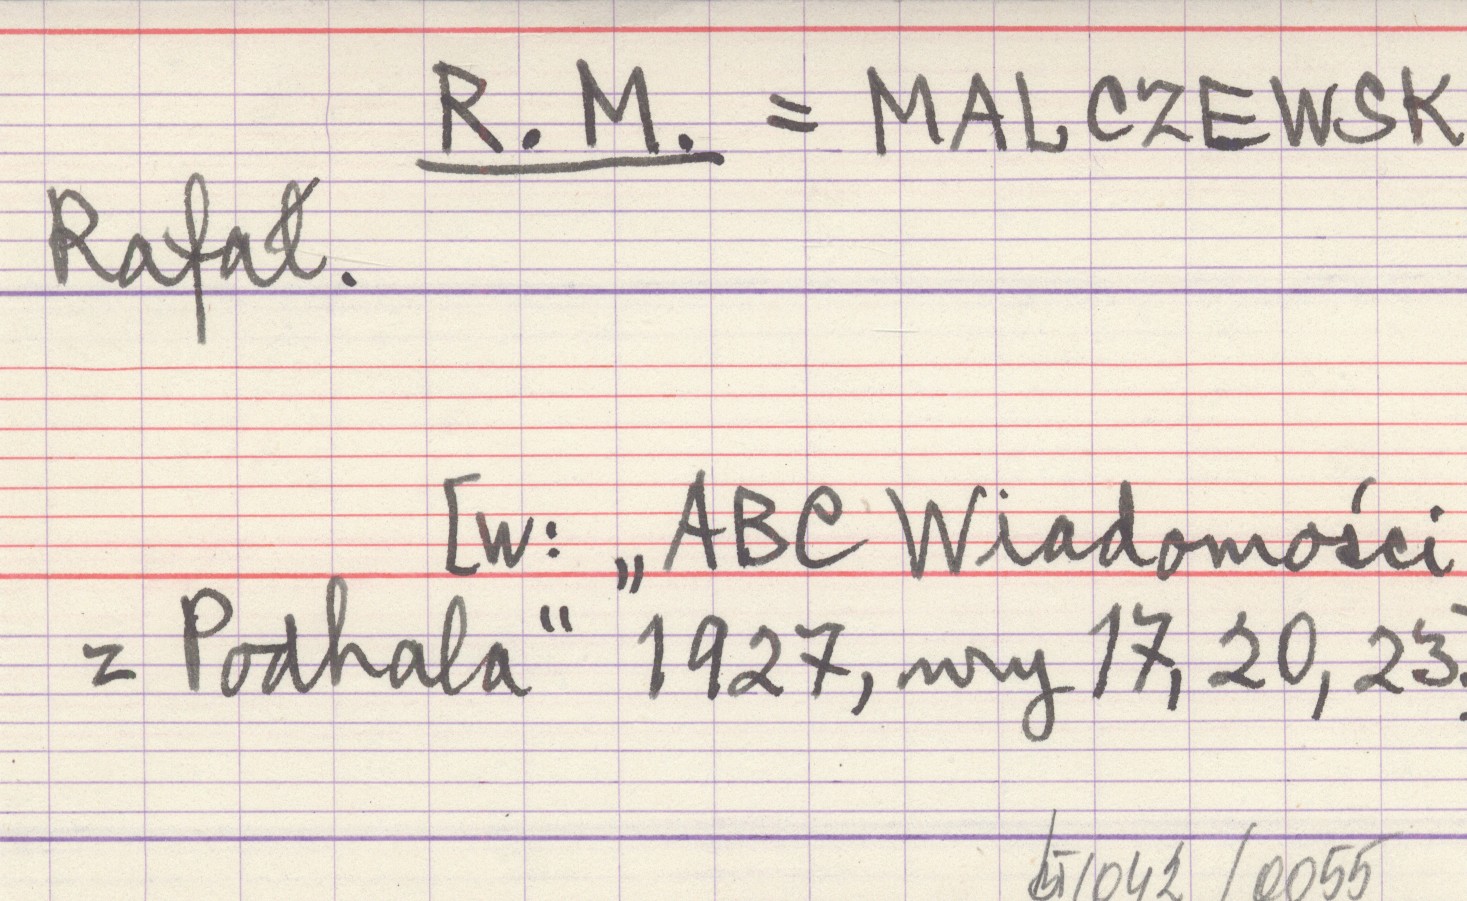 R. M. = MALCZEWSK
Rafał.
[w: „ABC Wiadomości
z Podhala“ 1927, nry 17, 20, 23.
/042 /0055